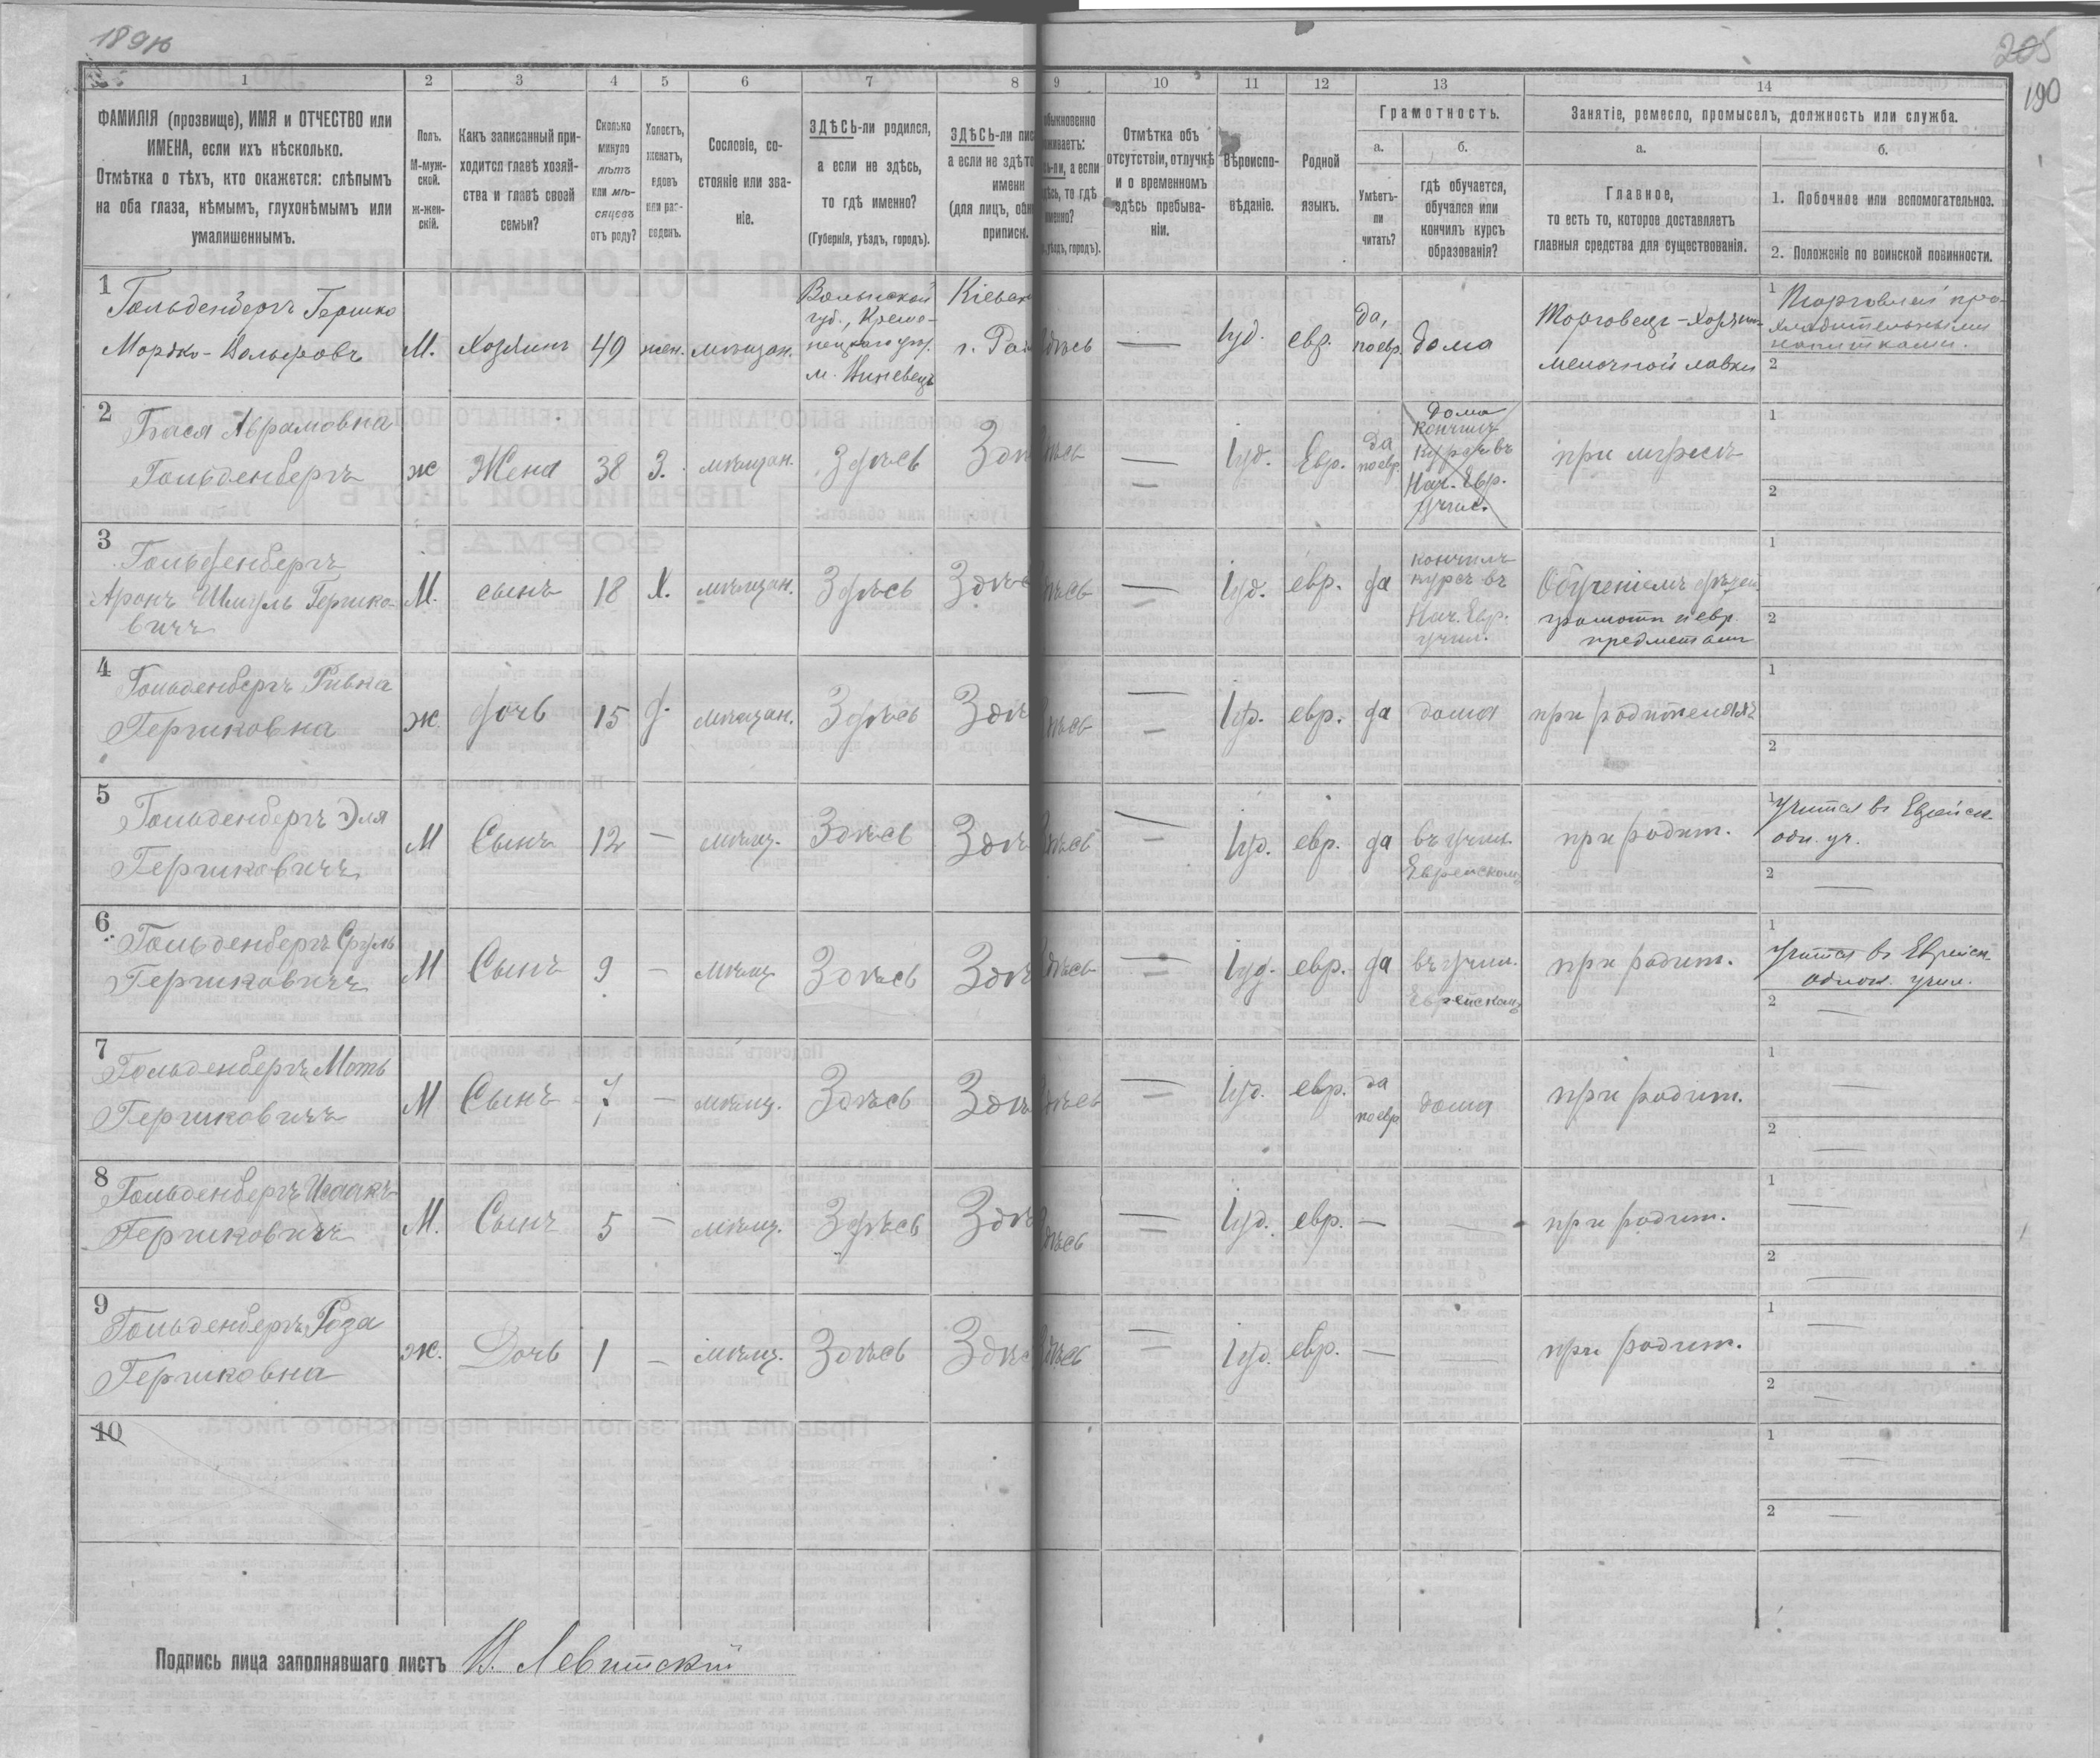 205
190
1 2 3 4 5 6 7 8 9 10 11 12 13 14
ФАМИЛІЯ (прозвище), ИМЯ и ОТЧЕСТВО или
ИМЕНА, если ихъ нѣсколько.
Отмѣтка о тѣхъ, кто окажется: слѣпымъ
на оба глаза, нѣмымъ, глухонѣмымъ или
умалишеннымъ.
Полъ.
М-муж-
ской.
ж-жен-
скій.
Какъ записанный при-
ходится главѣ хозяй-
ства и главѣ своей
семьи?
Сколько
минуло
лѣтъ
или мѣ-
сяцевъ
отъ роду?
Холостъ,
женатъ,
вдовъ
или раз-
веденъ.
Сословіе, со-
стояніе или зва-
ніе.
ЗДѢСЬ-ли родился,
а если не здѣсь,
то гдѣ именно?
(Губернія, уѣздъ, городъ).
ЗДѢСЬ-ли
а если не
(для лицъ,
Отмѣтка объ
отсутствіи, отлучкѣ
и о временномъ
здѣсь пребыва-
ніи.
Вѣроиспо-
вѣданіе.
Родной
языкъ.
Грамотность.
а.
Умѣетъ-
ли
читать?
б.
гдѣ обучается,
обучался или
кончилъ курсъ
образованія?
Занятіе, ремесло, промыселъ, должность или служба.
а.
Главное,
то есть то, которое доставляетъ
главныя средства для существованія.
б.
1. Побочное или вспомогательное.
2. Положеніе по воинской повинности.
1
Гольденбергъ Гершко
Мордко-Вольфовъ
М.
Хозяинъ
49
жен.
мѣщан.
Волынской
губ., Креме-
нецкаго уѣз.
м. Вишневецъ
Кіевск
—
Іуд.
евр.
да,
по евр.
дома
Торговецъ-хозяинъ
мелочной лавки
1 Торговля про-
хладительными
напитками.
2
2
Бася Абрамовна
Гольденбергъ
ж
Жена
38
З.
мѣщан.
Здѣсь
—
Іуд.
Евр.
да
по евр.
дома
кончилъ
курсъ въ
Нач. Евр.
учил.
при мужѣ
1
2
3
Гольденбергъ
Аронъ Шмуль Гершко-
вичъ
М.
сынъ
18
Х.
мѣщан.
Здѣсь
—
Іуд.
евр.
да
кончилъ
курсъ въ
Нач. Евр.
учил.
Обученіемъ дѣтей
грамотѣ и евр.
предметамъ
1
2
4
Гольденбергъ Ривка
Гершковна
ж
дочь
15
д.
мѣщан.
Здѣсь
—
Іуд.
евр.
да
дома
при родителяхъ
1
2
5
Гольденбергъ Эля
Гершковичъ
М
Сынъ
12
—
мѣщ.
Здѣсь
—
Іуд.
евр.
да
въ учил.
Еврейскомъ
при родит.
1 Учится въ Еврейск.
одн. уч.
2 —
6
Гольденбергъ Сруль
Гершковичъ
М
Сынъ
9
—
мѣщ
Здѣсь
—
Іуд.
евр.
да
въ учил.
Еврейскомъ
при родит.
1
Учится въ Еврейск.
однок. учил.
2 —
7
Гольденбергъ Моть
Гершковичъ
М
Сынъ
7
—
мѣщ.
Здѣсь
—
Іуд.
евр.
да
по евр
дома
при родит.
1 —
2 —
8
Гольденбергъ Исаакъ
Гершковичъ
М.
Сынъ
5
—
мѣщ.
Здѣсь
—
Іуд.
евр.
—
—
при родит.
1 —
2 —
9
Гольденбергъ Роза
Гершковна
ж.
Дочь
1
—
мѣщ.
Здѣсь
—
Іуд.
евр.
—
—
при родит.
1 —
2 —
10
1 —
2 —
Подпись лица заполнявшаго листъ И. Левитскій